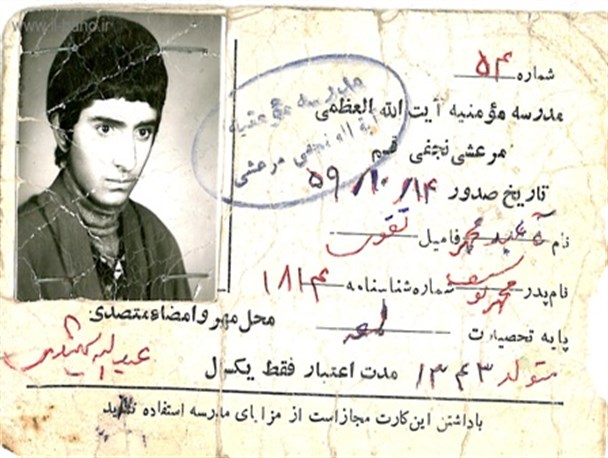 شماره ۵۴
مدرسه مؤمنیه آیت الله العظمی
مرعشی نجفی قم
تاریخ صدور ۵۹/۱۰/۱۴
نام سید محمد فامیل تقوی
نام پدر محمد یوسف شماره شناسنامه ۱۸۱۴
پایه تحصیلات لمعه
محل مهر و امضاء متصدی
متولد ۱۳۴۳ مدت اعتبار فقط یکسال
باداشتن این کارت مجاز است از مزایای مدرسه استفاده نماید
مدرسه مؤمنیه
آیة الله نجفی مرعشی